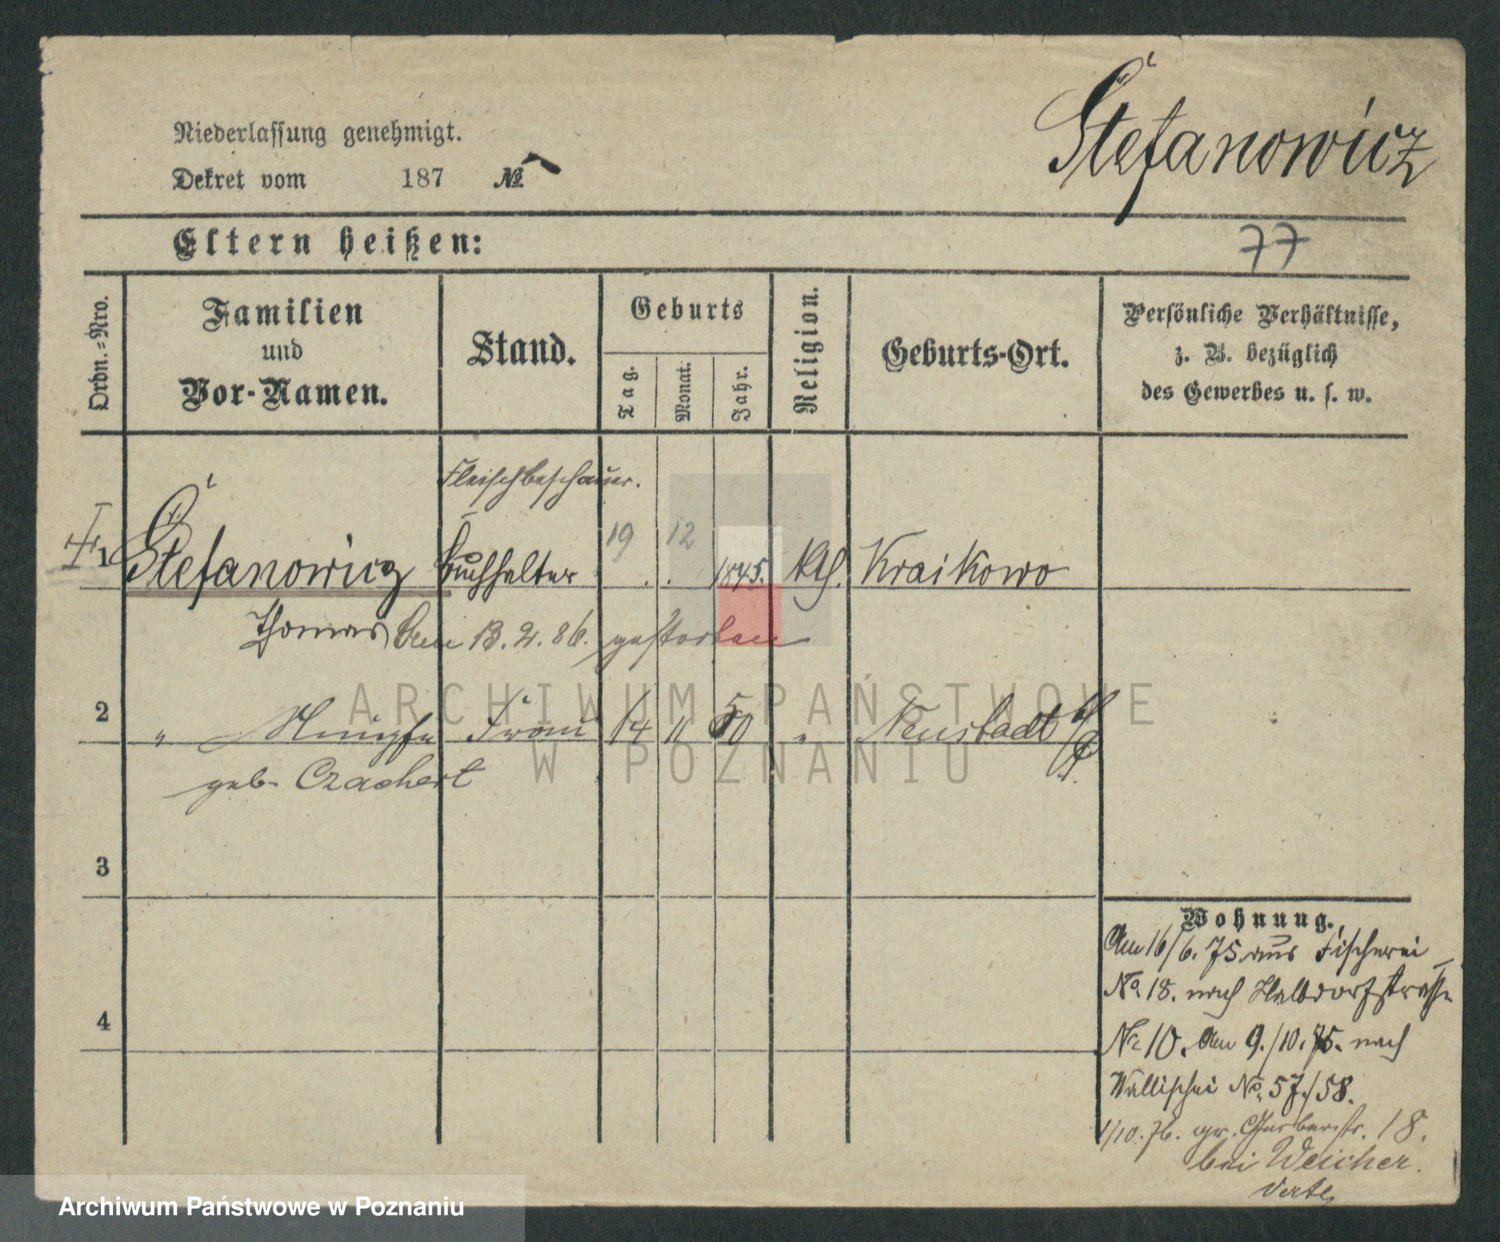 Stefanowicz
Niederlassung genehmigt.
Dekret vom 187 №
Eltern heißen:
77
Ordn.-Nro.
Familien
und
Vor-Namen.
Stand.
Geburts
Tag.
Monat.
Jahr.
Religion.
Geburts-Ort.
Persönliche Verhältnisse,
z. B. bezüglich
des Gewerbes u. s. w.
Fleischbeschauer.
1 Stefanowicz Buchhalter 19 12 1845. kth. Kraikowo
Thomas den 13. 2. 86. gestorben
2 " Frau 14 11 50 " Neustadt
geb. Czachert
3
4
Wohnung.
Am 16/6. 75 aus Fischerei
No. 18. nach Halbdorfstrasse
Nr. 10. Am 9./10. 75. nach
Wallischei No. 57./58.
1/10. 76. gr. Gerberstr. 18.
bei Weicher.
verte
ARCHIWUM PAŃSTWOWE
W POZNANIU
Archiwum Państwowe w Poznaniu